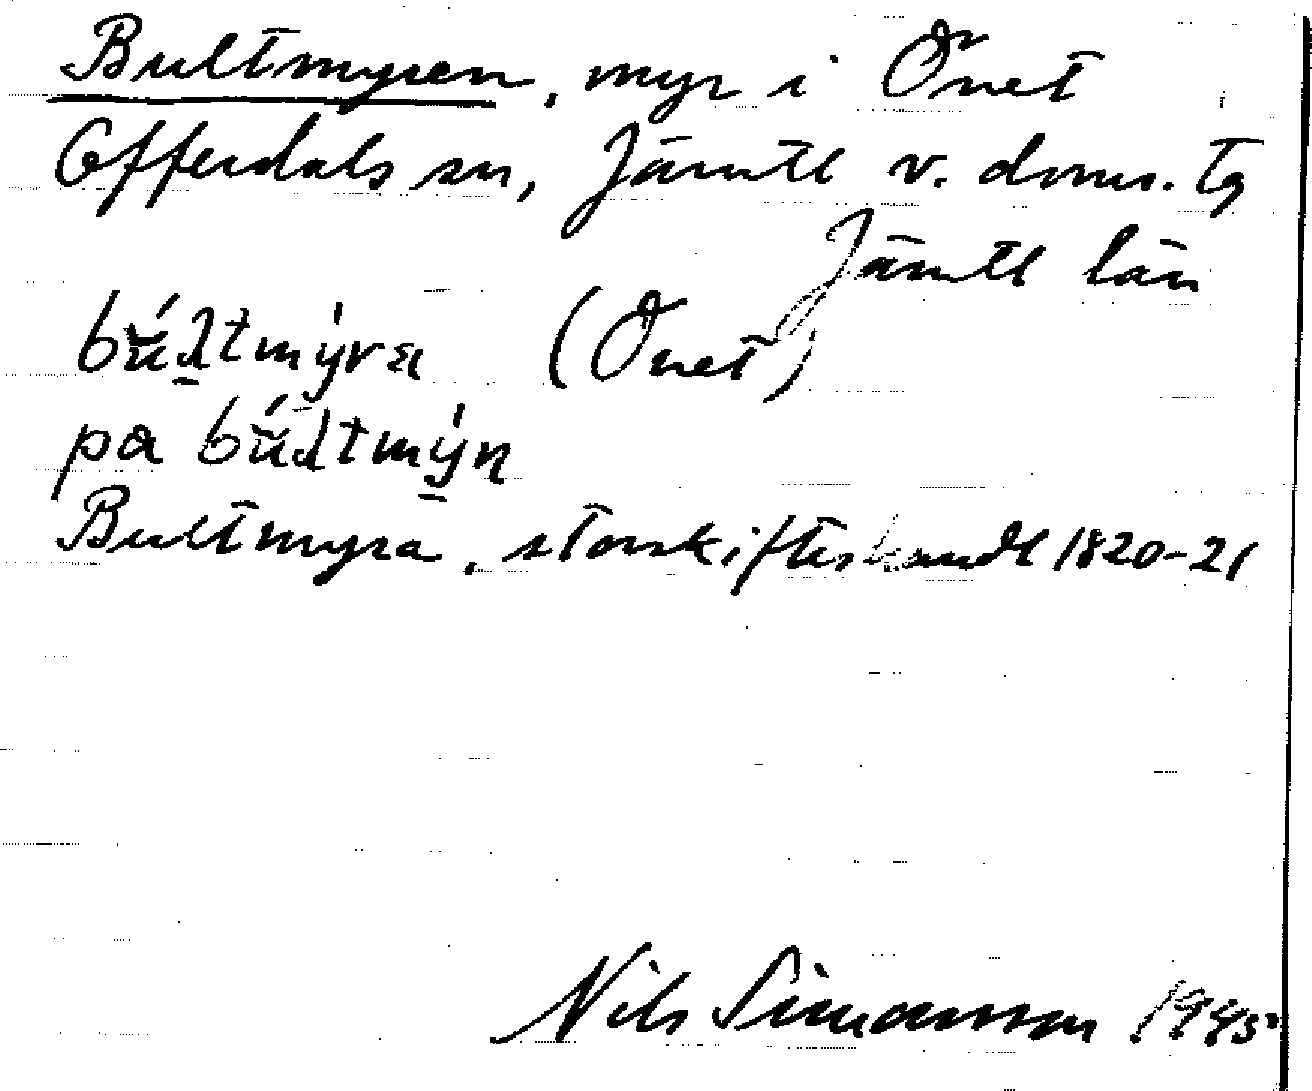 Bultmyren, myr i Önet
Offerdals sn, Jämtl v. doms. tg
Jämtl län
bú̆ltmýra (Önet)
pa bú̆ltmýn
Bultmyra, storskifteshandl 1820-21
Nils Simonsson 1945